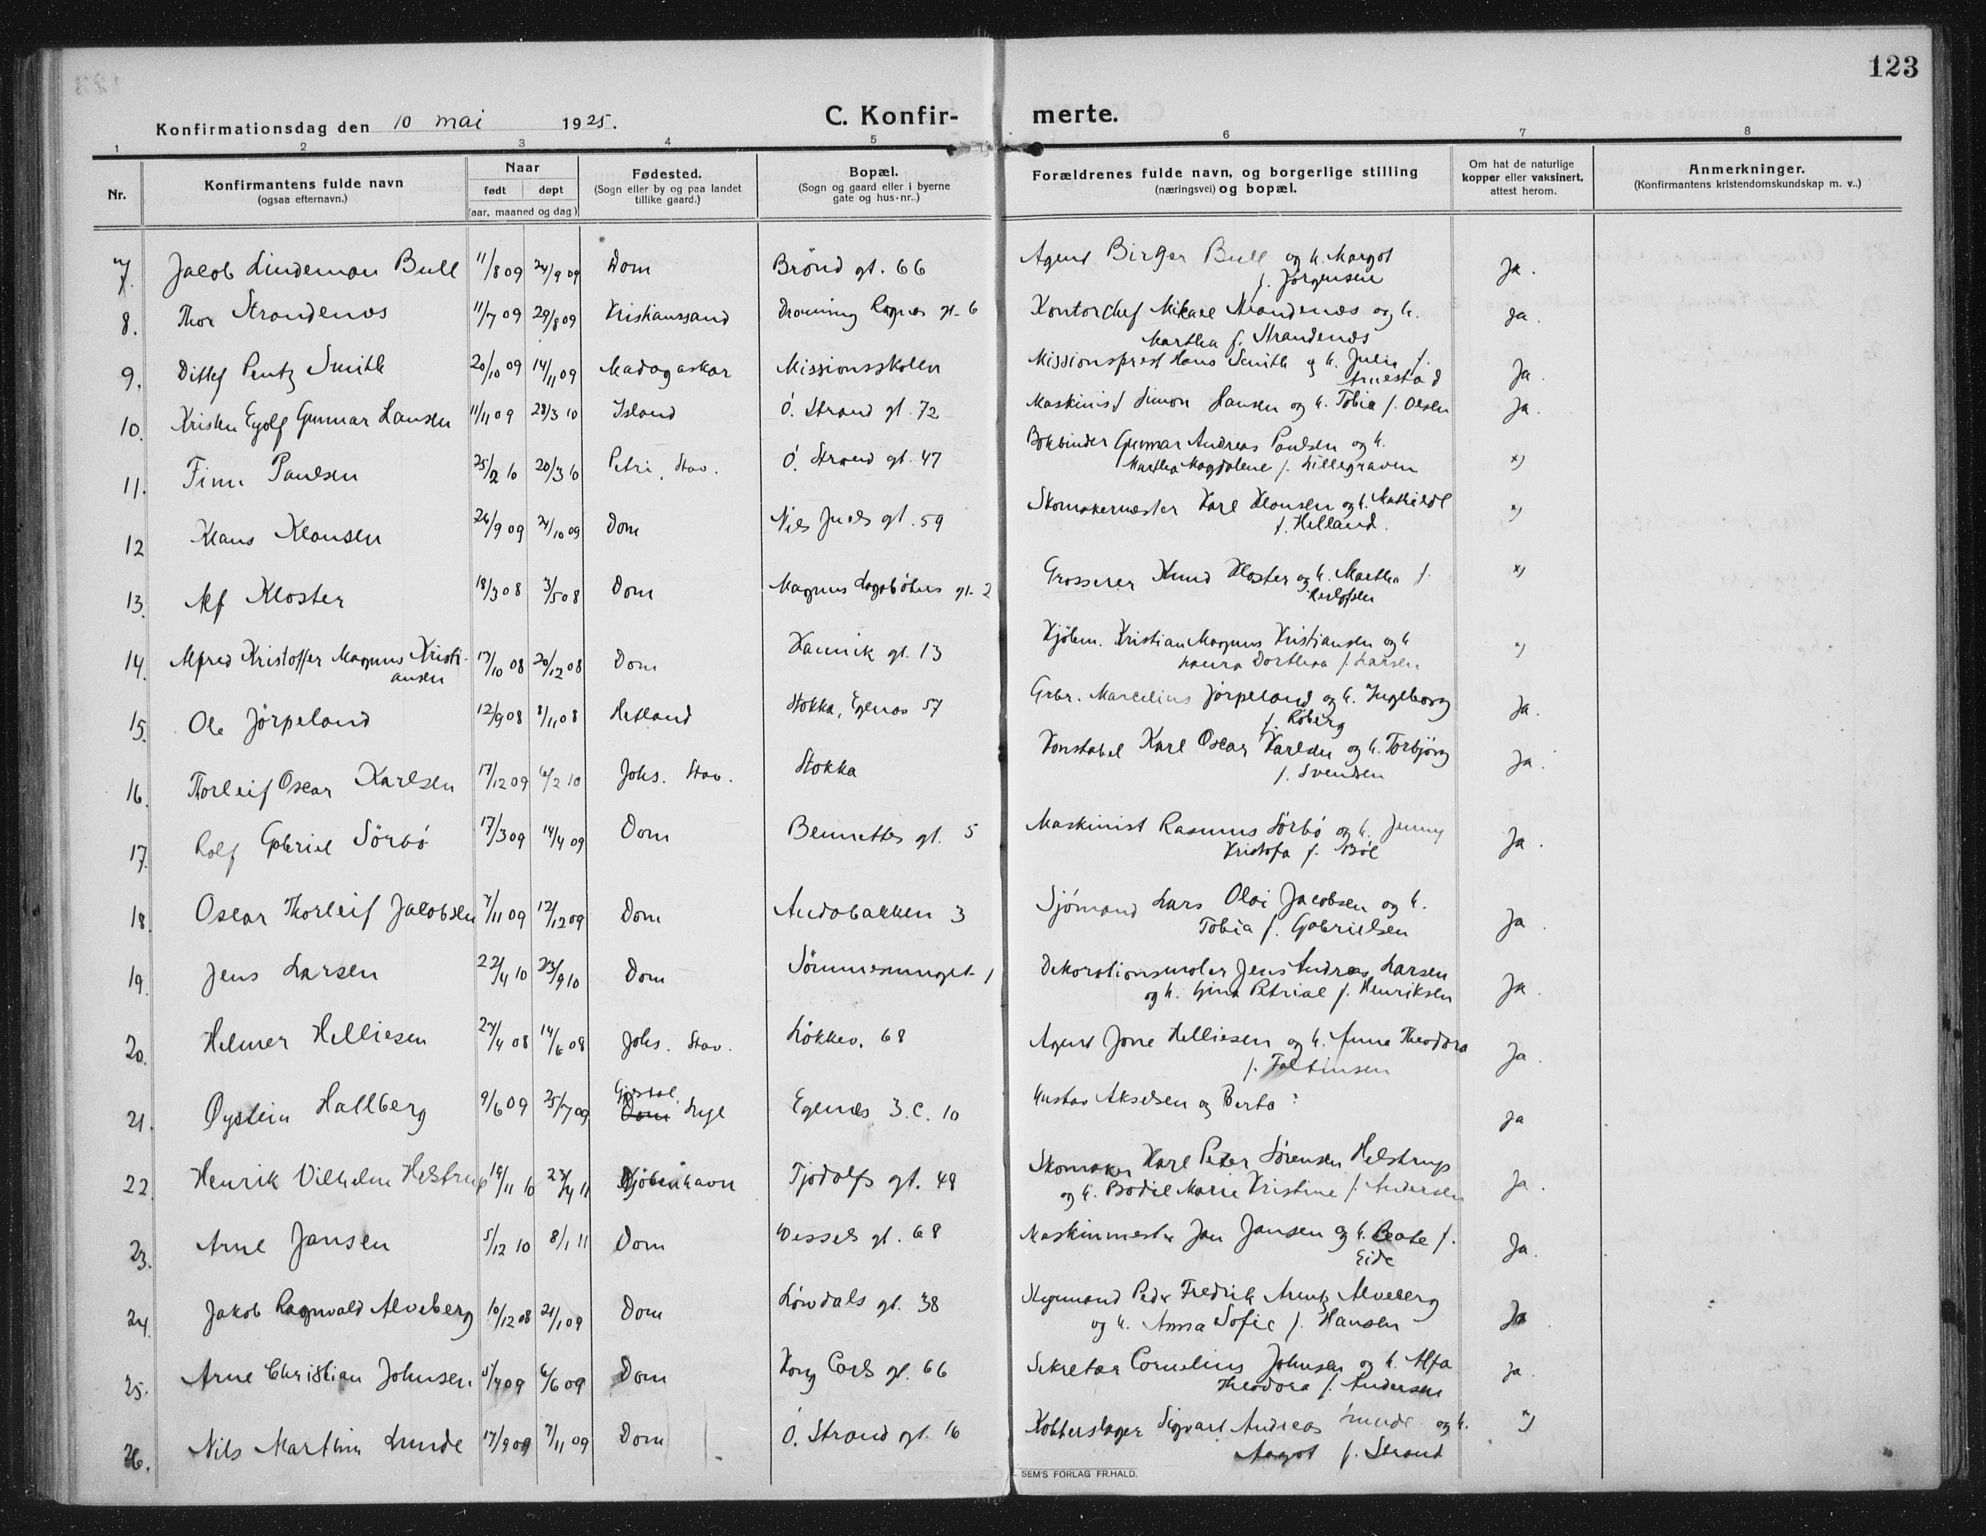 123
Konfirmationsdag den 10 mai 1925.
C. Konfir- merte.
1 2 3 4 5 6 7 8
Nr.
Konfirmantens fulde navn
(ogsaa efternavn.)
Naar
født døpt
(aar, maaned og dag)
Fødested.
(Sogn eller by og paa landet
tillike gaard.)
Bopæl.
(Sogn og gaard eller i byerne
gate og hus-nr.)
Forældrenes fulde navn, og borgerlige stilling
(næringsvei) og bopæl.
Om hat de naturlige
kopper eller vaksinert,
attest herom.
Anmerkninger.
(Konfirmantens kristendomskundskap m. v.)
7. Jacob Lindeman Bull 11/8 09 24/9 09 Dom Brønd gt. 66 Agent Birger Bull og h. Margot
f. Jørgensen Ja.
8. Thor Strandenæs 11/7 09 29/8 09 Kristianssand Dronning Ragnas gt. 6 Kontorchef Mikael Strandenæs og h.
Martha f. Strandenæs Ja.
9. Ditlef Pentz Smith 20/10 09 14/11 09 Madagaskar Missionsskolen Missionsprest Hans Smith og h. Julie f.
Arnestad Ja.
10. Kristen Eyolf Gunnar Hansen 11/11 09 28/3 10 Island Ö. Strand gt. 72 Maskinist Simon Hansen og h. Tobia f. Olsen Ja.
11. Finn Paulsen 25/2 10 20/3 10 Petri, Stav. Ö. Strand gt. 47 Bokbinder Gunnar Andreas Paulsen og h.
Martha Magdalene f. Lillegraven x)
12 Klaus Klausen 26/9 09 24/10 09 Dom Niels Juels gt. 59 Skomakermester Karl Klausen og h. Mathilde
f. Helland. x)
13. Alf Kloster 18/3 08 3/5 08 Dom Magnus Lagabøters gt. 2 Grosserer Knud Kloster og h. Martha f.
x)
14. Alfred Kristoffer Magnus Kristi-
ansen 17/10 08 20/12 08 Dom Kannik gt. 13 Kjøbm. Kristian Magnus Kristiansen og h
Laura Dorthea f. Larsen x)
15. Ole Jørpeland 12/9 08 8/11 08 Hetland Stokka, Egenæs 57 Grbr. Marcelius Jørpeland og h. Ingeborg
f. Røberg Ja.
16. Thorleif Oscar Karlsen 17/12 09 6/2 10 Johs. Stav. Stokka Konstabel Karl Oscar Karlsen og h. Torbjørg
f. Svendsen Ja.
17. Rolf Gabriel Sörbö 17/3 09 14/4 09 Dom Bennetter gt. 5 Maskinist Rasmus Sörbö og h. Jenny
Kristofa f. Bøe Ja.
18. Oscar Thorleif Jacobsen 7/11 09 12/12 09 Dom Andabakken 3 Sjømand Lars Olai Jacobsen og h.
Tobia f. Gabrielsen Ja.
19. Jens Larsen 22/4 10 23/9 10 Dom Sömmesmuget 1 Dekorationsmaler Jens Andreas Larsen
og h. Gina Petrine f. Henriksen Ja.
20. Helmer Helliesen 27/4 08 14/6 08 Johs. Stav. Løkkev. 68 Agent Jone Helliesen og h. Anna Theodora
f. Faltinsen Ja.
21. Øystein Hallberg 9/6 09 25/7 09 Gjesdal,
Dom Egenæs 3. C. 10 Gustav Akselsen og Berta ? Ja
22. Henrik Vilhelm Helstrup 19/11 10 23/4 11 Kjøbenhavn Tjodolfs gt. 48 Skomaker Karl Peter Sørensen Helstrup
og h. Bodil Marie Kristine f. Andersen Ja.
23. Arne Jansen 5/12 10 8/1 11 Dom Wessels gt. 68 Maskinmester Jan Jansen og h. Beate f.
Eide Ja.
24. Jakob Ragnvald Alveberg 10/12 08 24/1 09 Dom Løvdals gt. 38 Peder Fredrik Arntz Alveberg
og h. Anna Sofie f. Hansen Ja
25. Arne Christian Johnsen 5/4 09 6/6 09 Dom Kong Carls gt. 66 Sekretær Cornelius Johnsen og h. Alfa
Theodora f. Andersen Ja.
26. Nils Marthin Lunde 17/9 09 7/11 09 Dom Ö. Strand gt. 16 Kobberslager Sigvart Andreas Lunde og h.
Aagot f. Strand x)
SEM'S FORLAG FR.HALD.